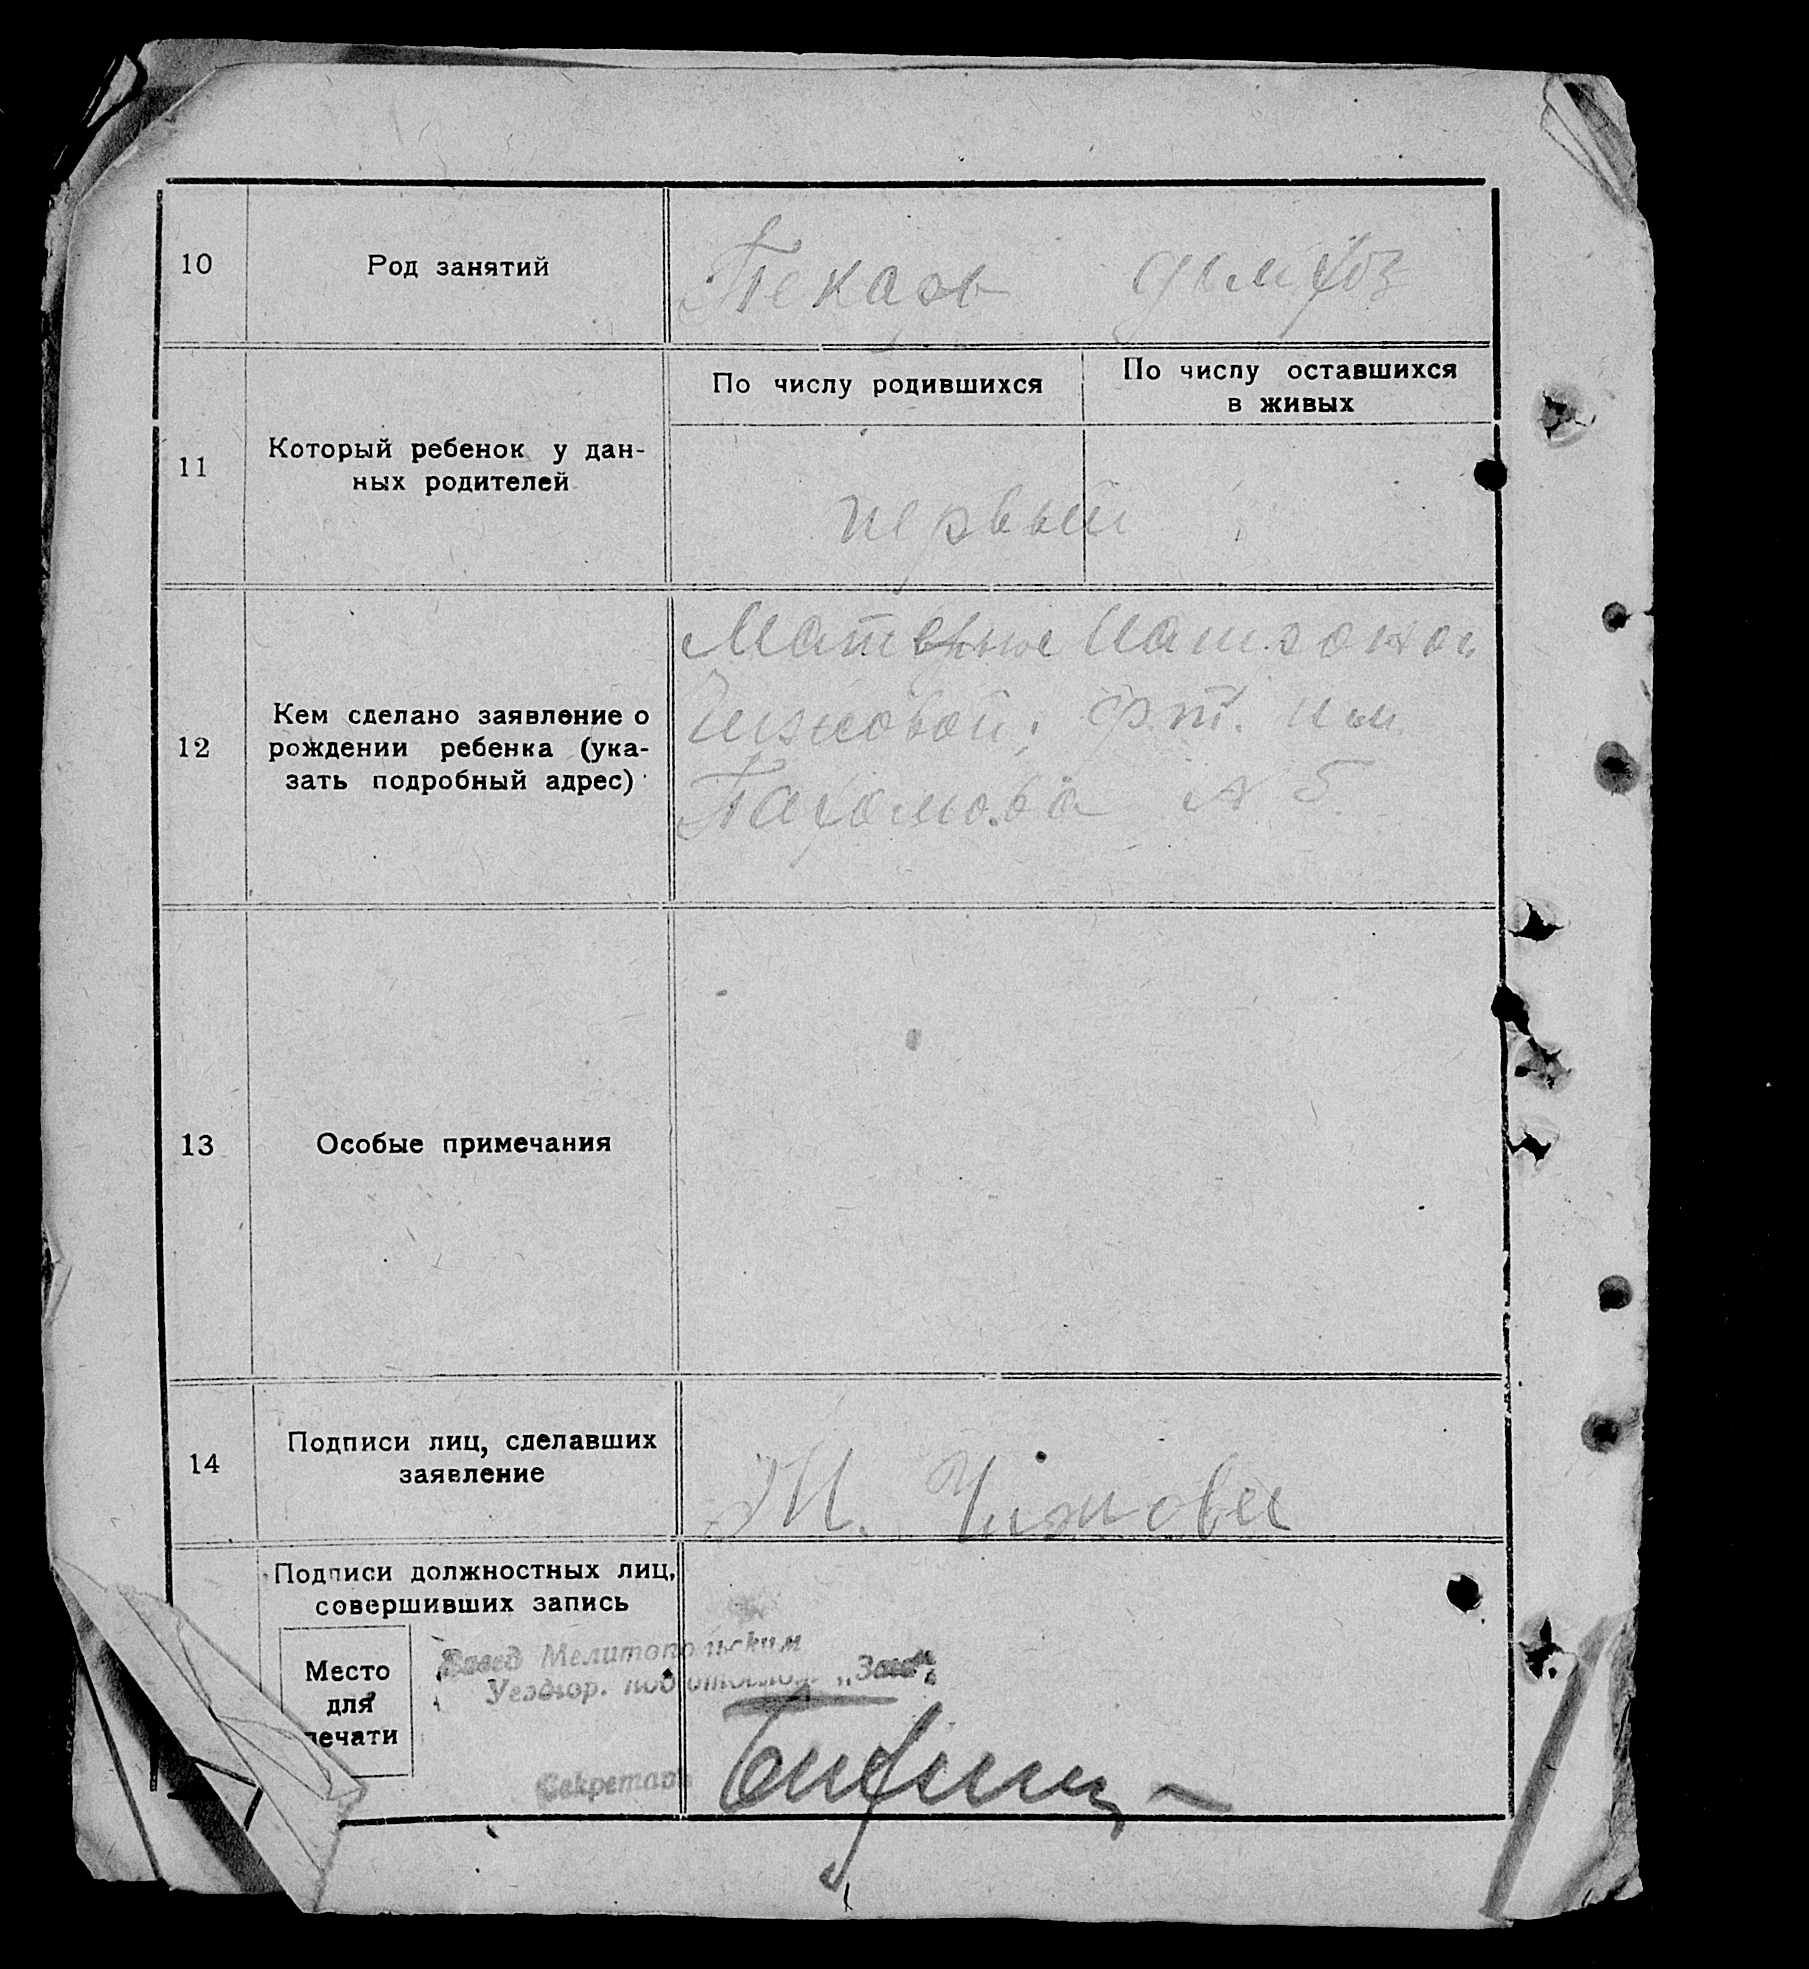 10 Род занятий Пекарь домхоз
По числу родившихся По числу оставшихся
в живых
11 Который ребенок у дан-
ных родителей
первый
12 Кем сделано заявление о
рождении ребенка (ука-
зать подробный адрес)
Матерью
Чижовой,
Пахомова № 5
13 Особые примечания
14 Подписи лиц, сделавших
заявление
М. Чижова
Подписи должностных лиц,
совершивших запись
Место
для
печати
Завед Мелитопольским
Уездгор. подотделом „Загс“
Секретарь